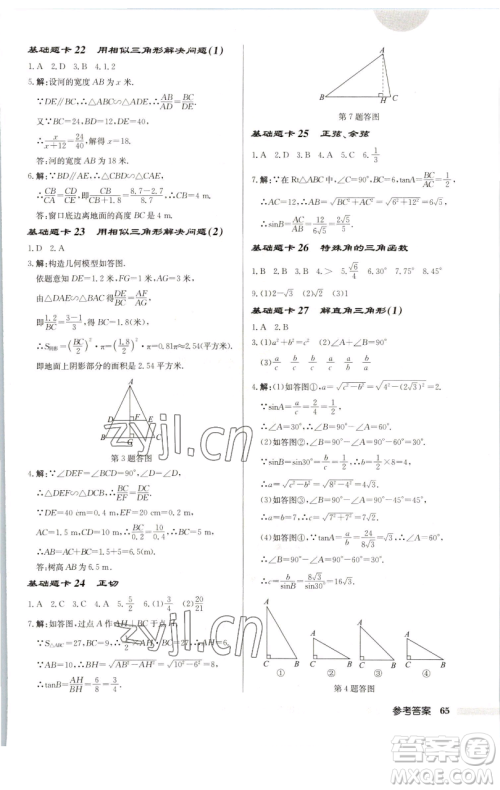 基础题卡 22 用相似三角形解决问题(1)
1. A 2. D 3. B 4. 1.2
5. 解:设河的宽度 AB 为 x 米.
∵DE∥BC,∴△ABC∽△ADE,∴AB/AD=BC/DE.
∵BC=24 米,DE=40 米,BD=12 米,
∴x/(x+12)=24/40,∴x=18.
答:河的宽度 AB 为 18 米.
6. 解:∵BD∥AE,∴△CBD∽△CAE,
∴CB/CA=CD/CE,∴BC/(BC+1.8)=(8.7-2.7)/8.7,
∴BC=4 m.
答:窗口底边离地面的高为 4 m.
基础题卡 23 用相似三角形解决问题(2)
1. D 2. A
3. 解:构造几何模型如答图.
依题意知 DE=1.2 米,FG=1 米,AG=3 米,
由△DAE∽△BAC 得DE/BC=AF/AG,
即1.2/BC=(3-1)/3,得 BC=1.8(米),
∴S=(BC/2)²·π=(1.8/2)²·π=0.81π≈2.54(平方米).
即地面上阴影部分的面积为 2.54 平方米.
A
D F E
B G C
第 3 题答图
4. 解:∵∠DEF=∠BCD=90°,∠D=∠D,
∴△DEF∽△DCB,∴BC/EF=DC/DE.
∵DE=40 cm=0.4 m,EF=20 cm=0.2 m,
AC=1.5 m,CD=10 m,∴BC/0.2=10/0.4,
∴BC=5 m,∴AB=AC+BC=1.5+5=6.5(m).
答:树高为 6.5 m.
基础题卡 24 正切
1. A 2. C 3. C 4. A 5. 5/2 6. (1)3/4 (2)20/21
7. 解:如答图,过点 A 作 AH⊥BC 于点 H.
∵S△ABC=27,∴1/2×AH·BC=27,∴AH=6.
∵AB=10,∴BH=√(AB²-AH²)=√(10²-6²)=8,
∴tanB=AH/BH=6/8=3/4.
A
B H C
第 7 题答图
基础题卡 25 正弦、余弦
1. A 2. A 3. D 4. A 5. C 6. 1/3
7. 解:∵在 Rt△ABC 中,∠C=90°,BC=6,tanA=BC/AC=1/2,
∴AC=12,∴AB=√(BC²+AC²)=√(6²+12²)=6√5,
∴sinB=AC/AB=12/(6√5)=2√5/5.
基础题卡 26 特殊角的三角函数
1. B 2. B 3. B 4. > 5. √6/4 6. 30° 7. 45° 8. 75°
9. (1)2-√3 (2)1-√3
基础题卡 27 解直角三角形(1)
1. A 2. B
3. (1)a²+b²=c² (2)∠A+∠B=90°
(3)a/c b/c a/b b/c a/c b/a
4. 解:(1)如答图①,a=√(c²-b²)=√(4²-(2√3)²)=2.
∵sinA=a/c=2/4=1/2,∴∠A=30°,∠B=60°.
(2)如答图②,∠B=90°-∠A=90°-60°=30°.
∵sinB=b/c=1/2,∴b=1/2×8=4,
∴a=√(c²-b²)=√(8²-4²)=4√3.
(3)如答图③,∵∠A=45°,∴∠B=45°,
∴b=a=7,∴c=√(7²+7²)=7√2.
(4)如答图④,∵tanA=a/b=24/(8√3)=√3,
∴∠A=60°,∴∠B=90°-∠A=90°-60°=30°,
∴c=b/sinB=8√3/sin30°=16√3.
B A C ① A C B ② B C A ③ A C B ④
第 4 题答图
zyjl.cn
zyjl.cn
参考答案 65